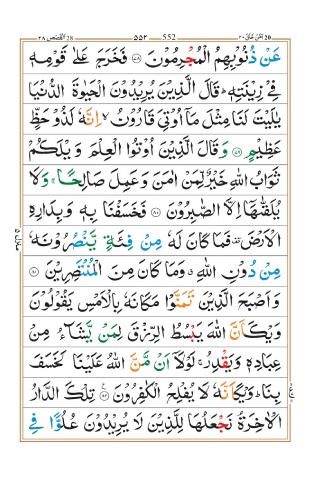 القصص ٢٨ ٥٥٢ 552 امن خلق ٢٠
عَنْ ذُنُوْبِهِمُ الْمُجْرِمُوْنَ ۟ فَخَرَجَ عَلٰى قَوْمِهٖ
فِيْ زِيْنَتِهٖ ؕ قَالَ الَّذِيْنَ يُرِيْدُوْنَ الْحَيٰوةَ الدُّنْيَا
يٰلَيْتَ لَنَا مِثْلَ مَاۤ اُوْتِيَ قَارُوْنُ ۙ اِنَّهٗ لَذُوْ حَظٍّ
عَظِيْمٍ ۟ وَقَالَ الَّذِيْنَ اُوْتُوا الْعِلْمَ وَيْلَكُمْ
ثَوَابُ اللّٰهِ خَيْرٌ لِّمَنْ اٰمَنَ وَعَمِلَ صَالِحًا ۚ وَلَا
يُلَقّٰىهَاۤ اِلَّا الصّٰبِرُوْنَ ۟ فَخَسَفْنَا بِهٖ وَبِدَارِهِ
الْاَرْضَ ۫ فَمَا كَانَ لَهٗ مِنْ فِئَةٍ يَّنْصُرُوْنَهٗ
مِنْ دُوْنِ اللّٰهِ ۗ وَمَا كَانَ مِنَ الْمُنْتَصِرِيْنَ ۟
وَاَصْبَحَ الَّذِيْنَ تَمَنَّوْا مَكَانَهٗ بِالْاَمْسِ يَقُوْلُوْنَ
وَيْكَاَنَّ اللّٰهَ يَبْسُطُ الرِّزْقَ لِمَنْ يَّشَآءُ مِنْ
عِبَادِهٖ وَيَقْدِرُ ۚ لَوْلَاۤ اَنْ مَّنَّ اللّٰهُ عَلَيْنَا لَخَسَفَ
بِنَا ؕ وَيْكَاَنَّهٗ لَا يُفْلِحُ الْكٰفِرُوْنَ ۟ تِلْكَ الدَّارُ
الْاٰخِرَةُ نَجْعَلُهَا لِلَّذِيْنَ لَا يُرِيْدُوْنَ عُلُوًّا فِي